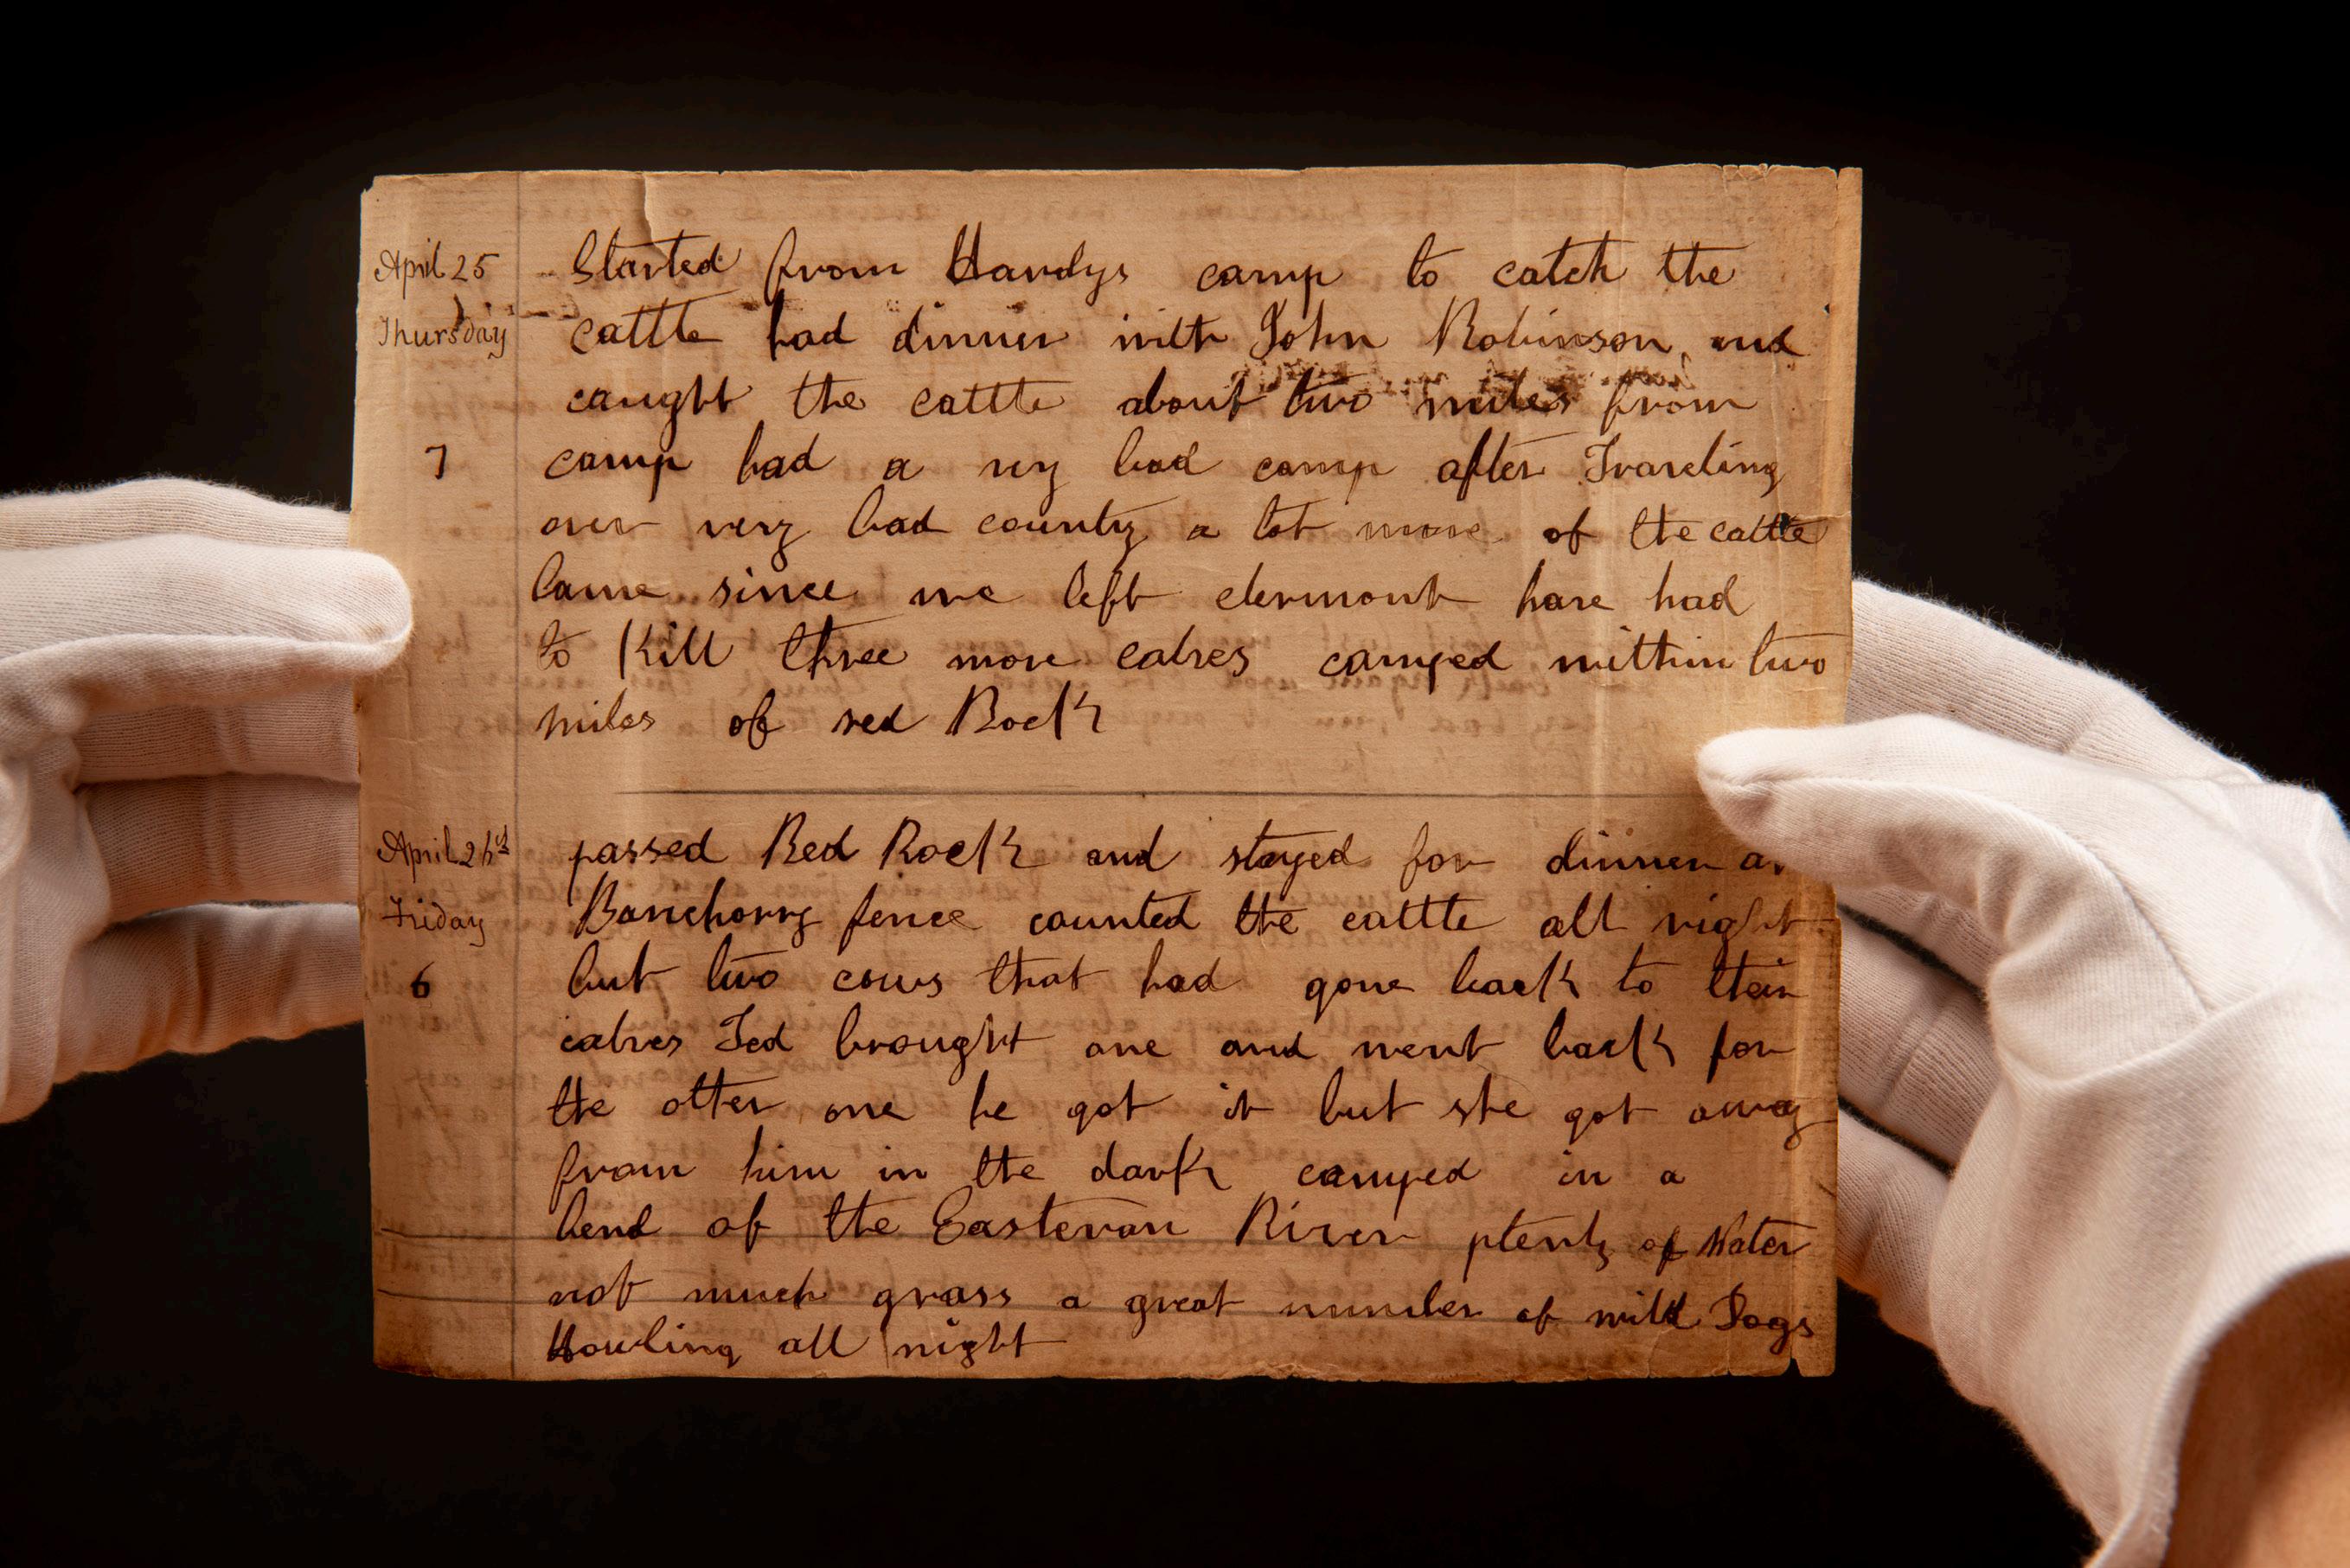 April 25 Started from Hardys camp to catch the
Thursday cattle had dinner with John Robinson, and
caught the cattle about two miles from
7 camp had a vey bad camp after Traveling
over very bad county a lot more of the cattle
lame since we left clermont have had
to Kill three more calves camped within two
miles of red Rock
April 26th passed Red Rock and stayed for dinner at
Friday Banchorry fence counted the cattle all right
6 but two cows that had gone back to their
calves Ted brought one and went back for
the other one he got it but she got away
from him in the dark camped in a
bend of the Eastevan River plenty of Water
not much grass a great number of wild Dogs
Howling all night